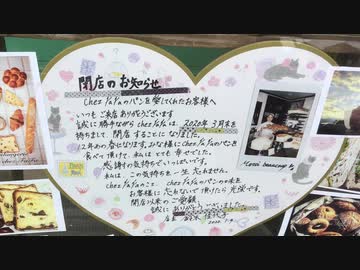 閉店のお知らせ
chez PaPaのパンを愛してくれたお客様へ
いつもご来店ありがとうございます
誠に勝手ながら chez PaPaは、2020年3月末を
持ちまして、閉店することになりました。
12年の春になります。みなさんがchez PaPaのパンを
食べて頂けて、私はとても幸せでした。
感謝の気持ちでいっぱいです。
私は、この気持ちを一生忘れません。
chez PaPaのこと、chez PaPaのパンの味を
お客様に忘れないで頂けたら光栄です。
開店以来のご愛顧
誠にありがとうございました。
Merci beaucoup